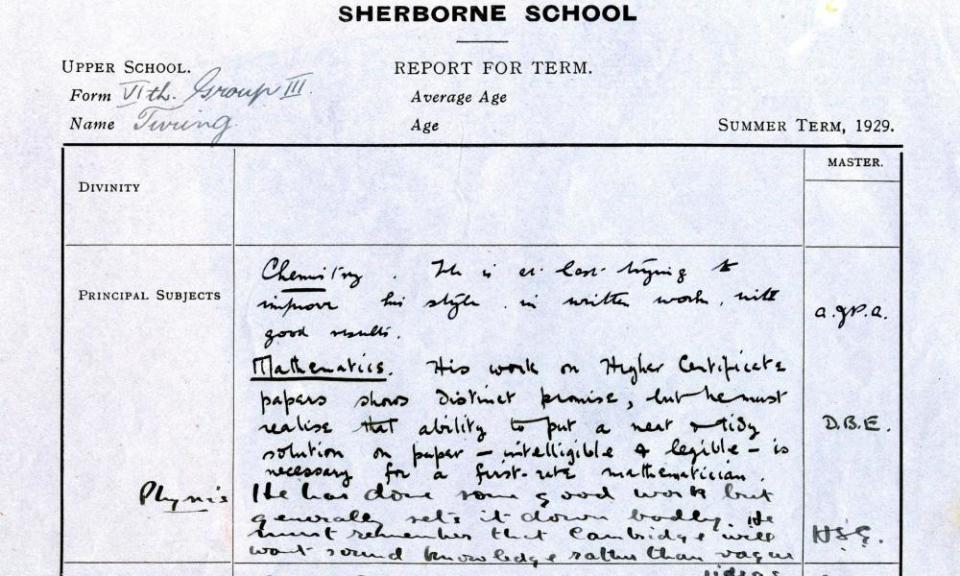 SHERBORNE SCHOOL
UPPER SCHOOL.
REPORT FOR TERM.
Form VIth. Group III.
Average Age
Name Turing
Age
SUMMER TERM, 1929.
MASTER.
DIVINITY
PRINCIPAL SUBJECTS
Chemistry. He is at last trying to
improve his style in written work, with
good results.
A.J.P.A.
Mathematics. His work on Higher Certificate
papers shows distinct promise, but he must
realise that ability to put a neat & tidy
solution on paper – intelligible & legible – is
necessary for a first-rate mathematician.
D.B.E.
Physics He has done some good work but
generally sets it down badly. He
must remember that Cambridge will
want sound knowledge rather than vague
ideas
H.S.G.